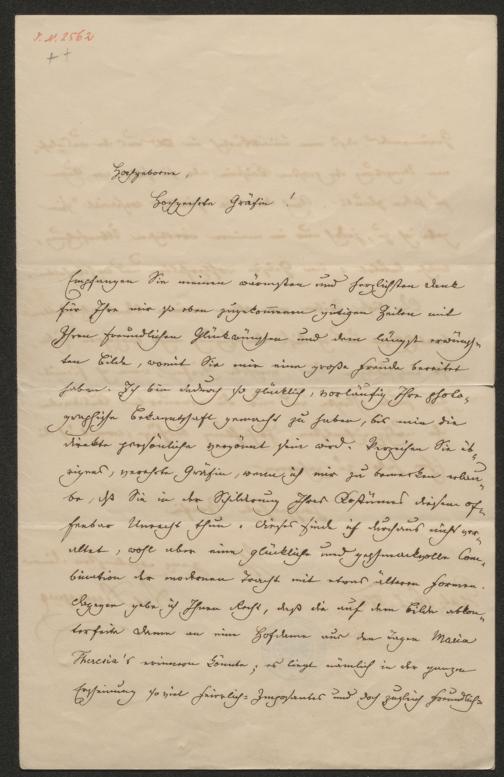 I. N. 2562
Hochgeborne,
Hochverehrte Gräfin!
Empfangen Sie meinen wärmsten und herzlichsten Dank
für Ihre mir so eben zugekommenen gütigen Zeilen mit
Ihren freundlichen Glückwünschen und dem längst erwünsch-
ten Bilde, womit Sie mir eine große Freude bereitet
haben. Ich bin dadurch so glücklich, vorläufig Ihre photo-
graphische Bekanntschaft gemacht zu haben, bis mir die
direkte persönliche vergönnt sein wird. Verzeihen Sie üb-
rigens, verehrte Gräfin, wenn ich mir zu bemerken erlau-
be, dß Sie in der Schilderung Ihres Kostümes diesem of-
fenbar Unrecht thun. Dieses finde ich durchaus nicht ver-
altet, wohl aber eine glückliche und geschmackvolle Com-
bination der modernen Tracht mit etwas älteren Formen.
Dagegen gebe ich Ihnen Recht, daß die auf dem Bilde abkon-
terfeite Dame an eine Hofdame aus den Tagen Maria
Theresia's erinnern könnte; es liegt nämlich in der ganzen
Erscheinung so viel Feierlich-Imposantes und doch zugleich Freundlich-